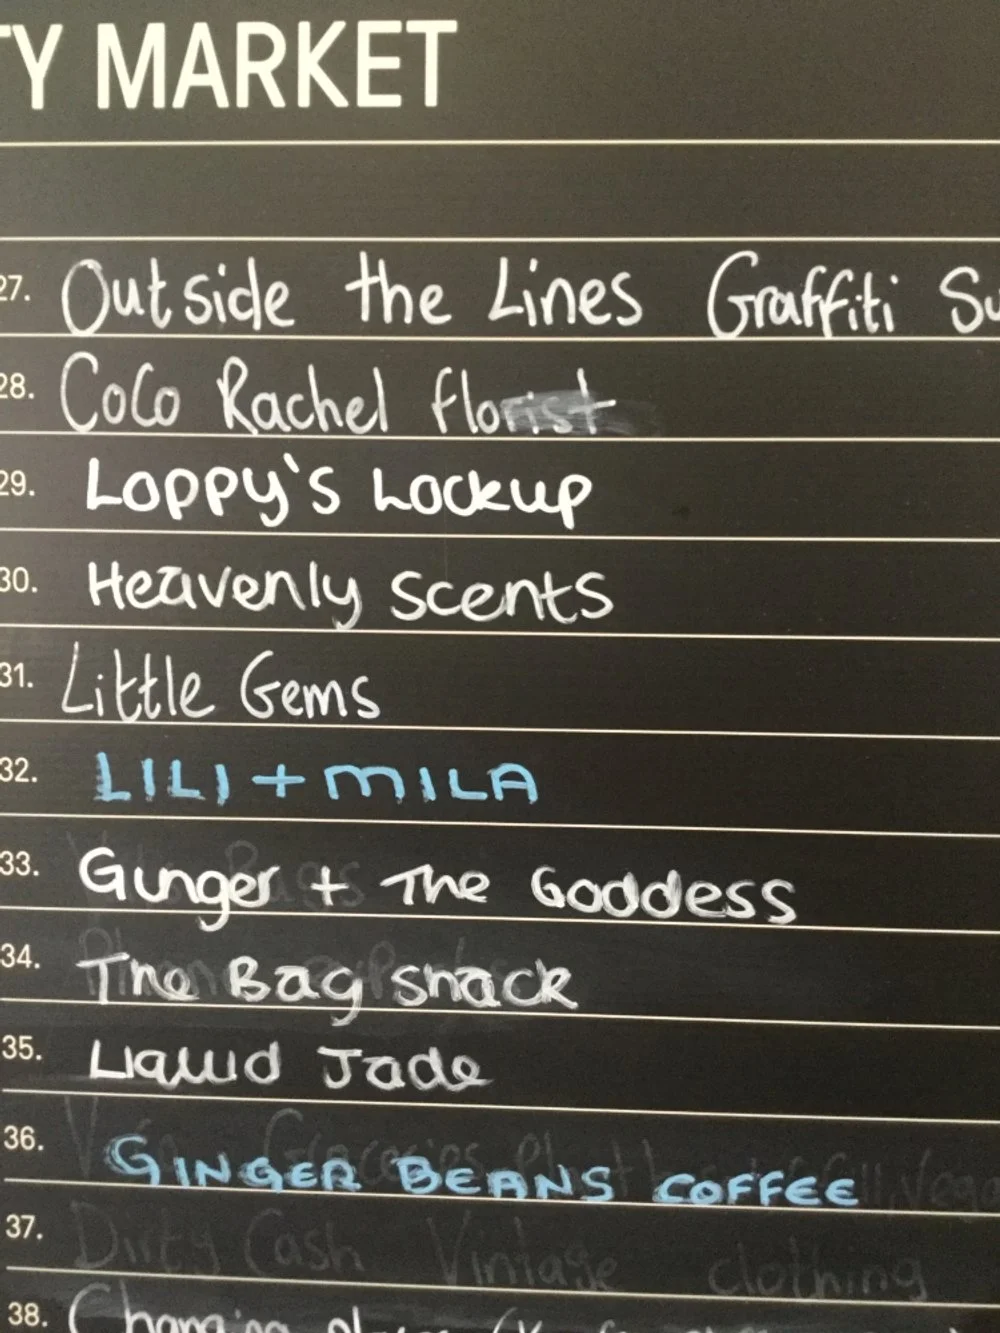 TY MARKET
27. Outside the Lines Graffiti Su
28. CoCo Rachel florist
29. Loppy's Lockup
30. Heavenly Scents
31. Little Gems
32. LILI + MILA
33. Gunger + The Goddess
34. The Bag Snack
35. Liquid Jade
36. GINGER BEANS COFFEE
37. Dirty Cash Vintage clothing
38. Changing places